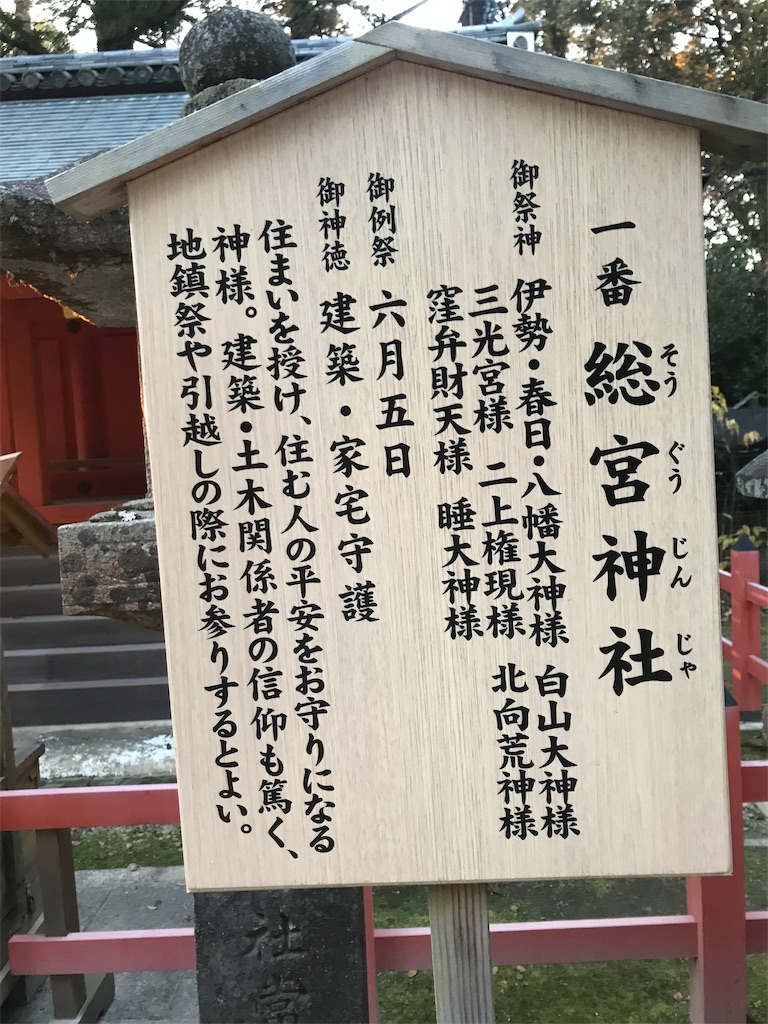 一番 総宮神社
そうぐうじんじゃ
御祭神 伊勢・春日・八幡大神様 白山大神様
三光宮様 二上権現様 北向荒神様
窪弁財天様 睡大神様
御例祭 六月五日
御神徳 建築・家宅守護
住まいを授け、住む人の平安をお守りになる
神様。建築・土木関係者の信仰も篤く、
地鎮祭や引越しの際にお参りするとよい。
社